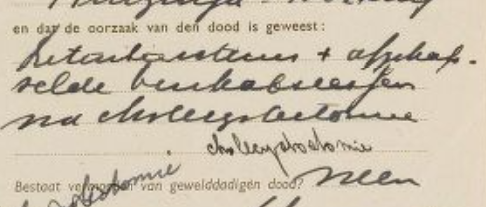 en dat de oorzaak van den dood is geweest:
+ afgekap-
selde buikabscessen
na cholecystectomie
cholecystectomie
Bestaat vermoeden van gewelddadigen dood? Neen